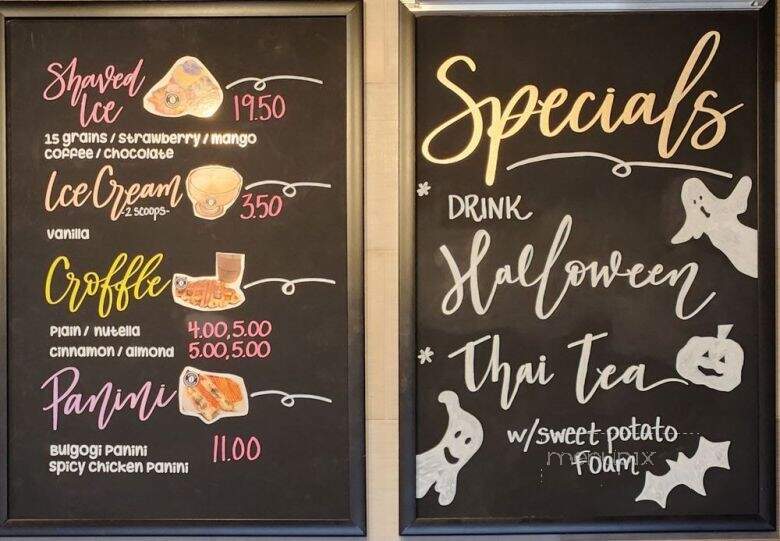 Shaved
Ice
19.50
15 grains / strawberry / mango
coffee / chocolate
Ice Cream
-2 scoops-
3.50
vanilla
Croffle
Plain / nutella 4.00, 5.00
cinnamon / almond 5.00, 5.00
Panini
Bulgogi Panini
spicy chicken Panini
11.00
Specials
* DRINK
Halloween
* Thai Tea
w/sweet potato
foam
menupix